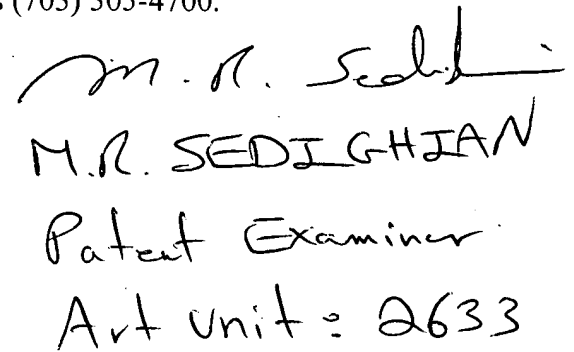 (703) 305-4700.
M. R. Sedighian
M.R. SEDIGHIAN
Patent Examiner
Art unit: 2633